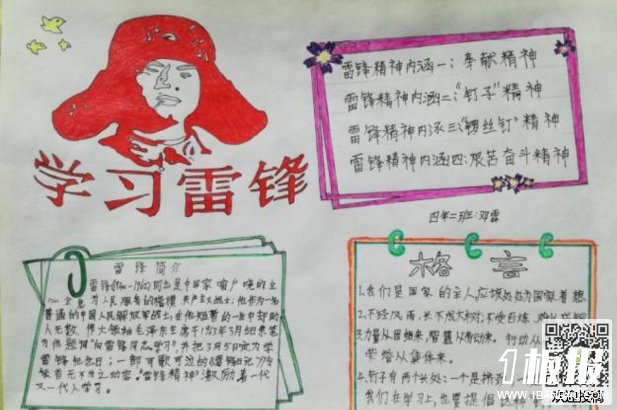 学习雷锋
雷锋精神内涵一:奉献精神
雷锋精神内涵二:"钉子"精神
雷锋精神内涵三:"螺丝钉"精神
雷锋精神内涵四:艰苦奋斗精神
四年二班:邓雪
雷锋简介
雷锋(1940-1962)同志是中国家喻户晓的全
心全意为人民服务的楷模 共产主义战士;他作为一名
普通的中国人民解放军战士;在他短暂的一生中帮助
人无数 伟大领袖毛泽东主席于1963年3月5日亲笔
为他题词"向雷锋同志学习",并把3月5日定为学
雷锋纪念日;一部可歌可泣的《雷锋日记》令
读者无不为之动容。"雷锋精神"激励着一代
又一代人学习。
格言
1.我们是国家的主人,应该处处为国家着想
2.不经风雨,长不成大树;不受百炼,难以成钢
3.力量从团结来,智慧从劳动来。行动从
荣誉从集体来。
4.钉子有两个长处:一个是挤
我们在学习上,也要提倡
1板报
欢迎投稿